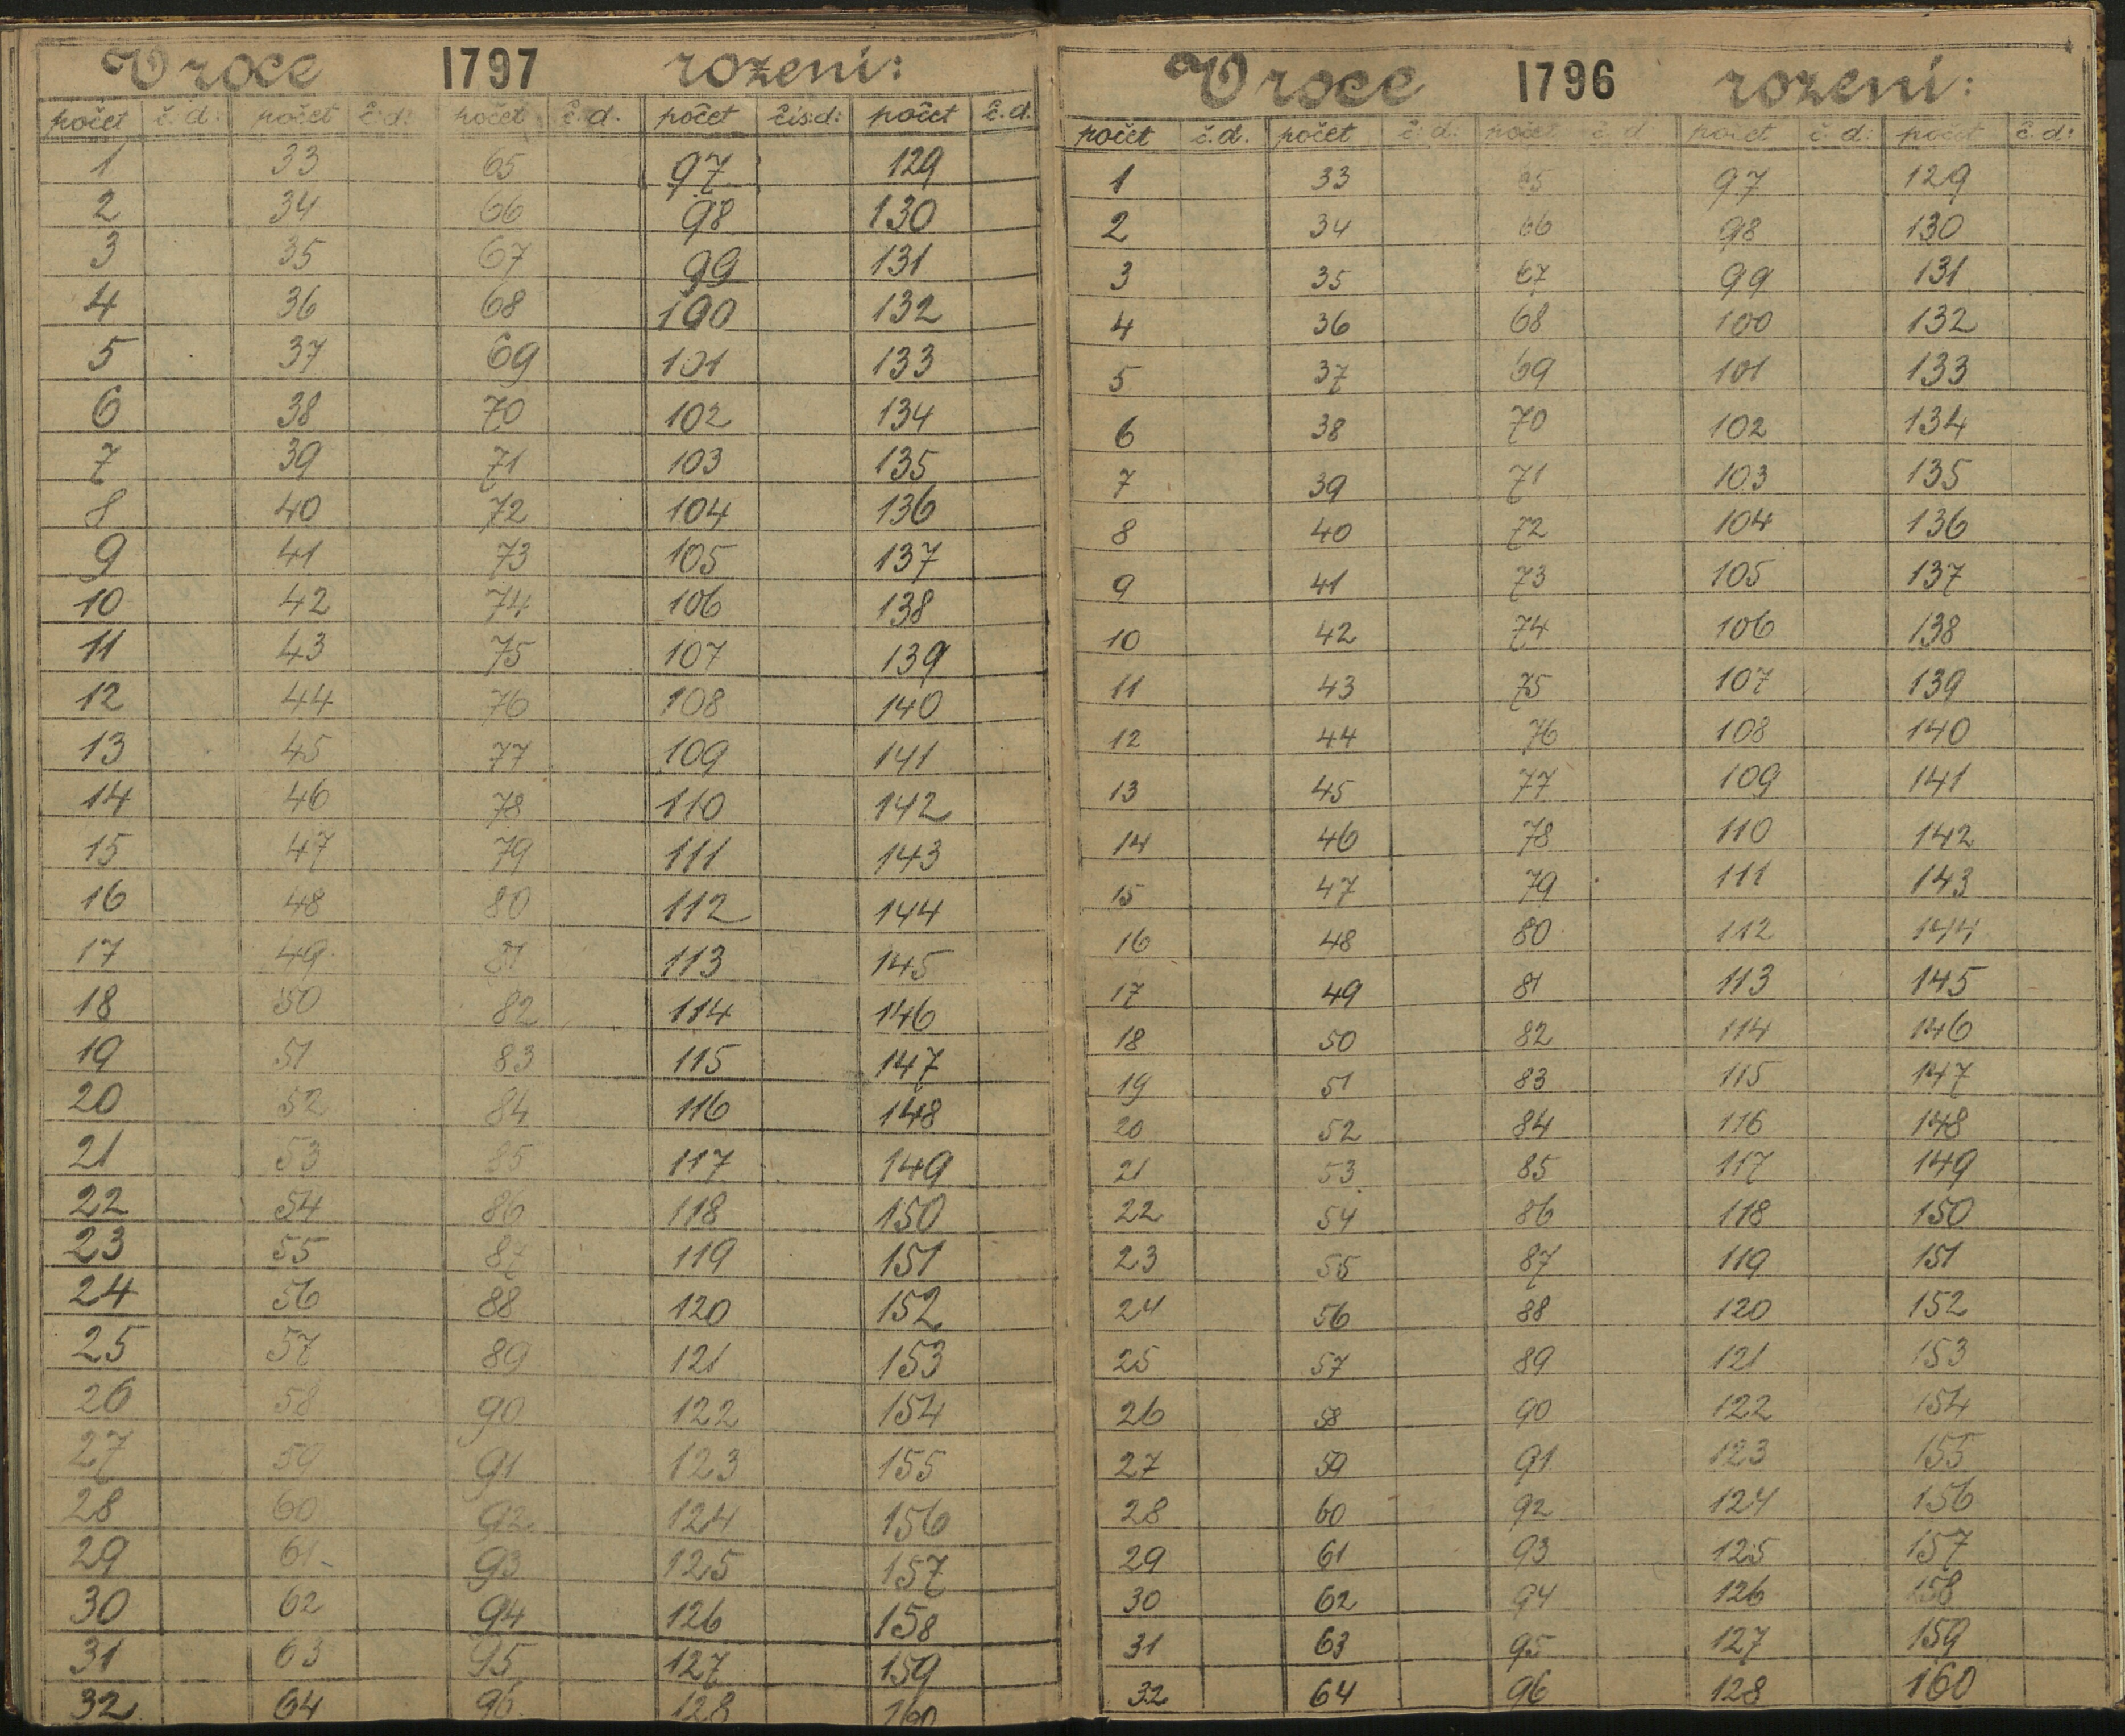 V roce 1797 rozeni:
počet č.d: počet č:d: počet č.d. počet čis:d: počet č.d.
1 33 65 97 129
2 34 66 98 130
3 35 67 99 131
4 36 68 100 132
5 37 69 101 133
6 38 70 102 134
7 39 71 103 135
8 40 72 104 136
9 41 73 105 137
10 42 74 106 138
11 43 75 107 139
12 44 76 108 140
13 45 77 109 141
14 46 78 110 142
15 47 79 111 143
16 48 80 112 144
17 49 81 113 145
18 50 82 114 146
19 51 83 115 147
20 52 84 116 148
21 53 85 117 149
22 54 86 118 150
23 55 87 119 151
24 56 88 120 152
25 57 89 121 153
26 58 90 122 154
27 59 91 123 155
28 60 92 124 156
29 61 93 125 157
30 62 94 126 158
31 63 95 127 159
32 64 96 128 160
V roce 1796 rozeni:
počet č.d. počet č:d: počet č d počet č.d: počet č.d:
1 33 65 97 129
2 34 66 98 130
3 35 67 99 131
4 36 68 100 132
5 37 69 101 133
6 38 70 102 134
7 39 71 103 135
8 40 72 104 136
9 41 73 105 137
10 42 74 106 138
11 43 75 107 139
12 44 76 108 140
13 45 77 109 141
14 46 78 110 142
15 47 79 111 143
16 48 80 112 144
17 49 81 113 145
18 50 82 114 146
19 51 83 115 147
20 52 84 116 148
21 53 85 117 149
22 54 86 118 150
23 55 87 119 151
24 56 88 120 152
25 57 89 121 153
26 58 90 122 154
27 59 91 123 155
28 60 92 124 156
29 61 93 125 157
30 62 94 126 158
31 63 95 127 159
32 64 96 128 160